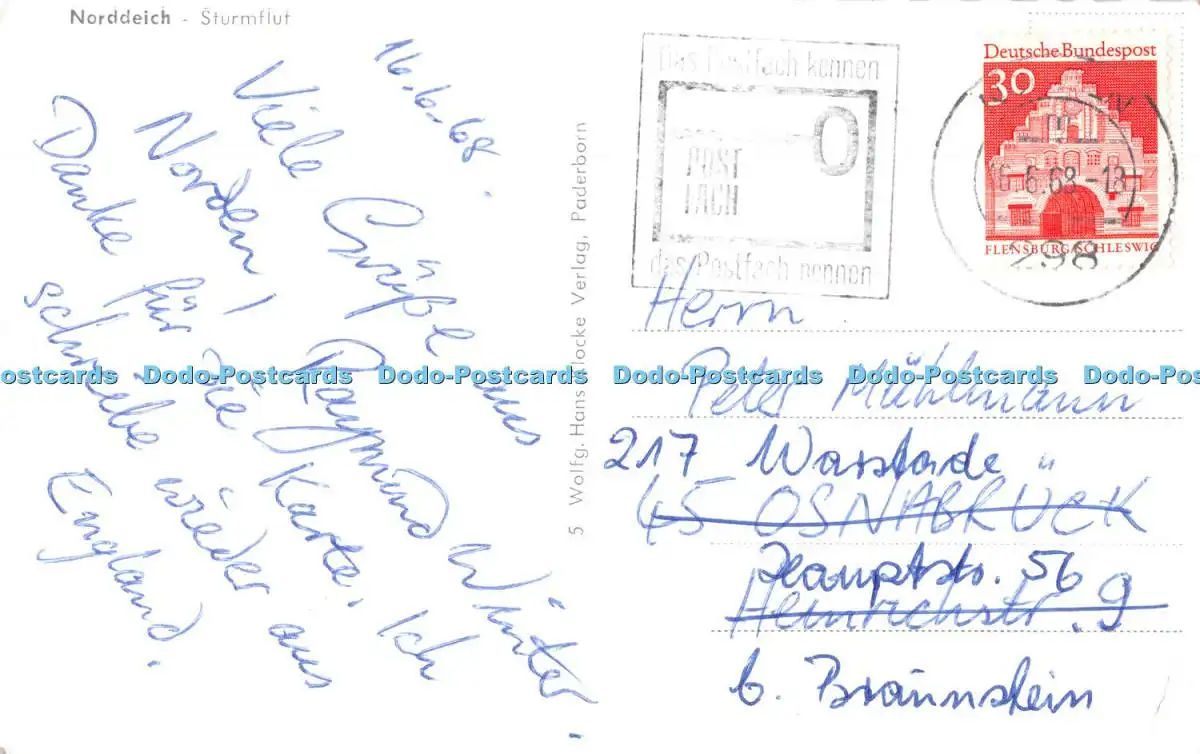 Norddeich - Sturmflut
16.6.68.
Viele Grüße aus
Norden! Raymund Winter
Danke für die Karte. Ich
schreibe wieder aus
England.
5 Wolfg. Hans Klocke Verlag, Paderborn
Das Postfach kennen
POST
FACH
das Postfach nennen
Deutsche Bundespost
30
FLENSBURG/SCHLESWIG
16.6.68-18
298
Herrn
Peter Mühlmann
217 Warstade
45 OSNABRÜCK
Hauptstr. 56
Heinrichstr. 9
b. Braunstein
Dodo-Postcards Dodo-Postcards Dodo-Postcards Dodo-Postcards Dodo-Postcards